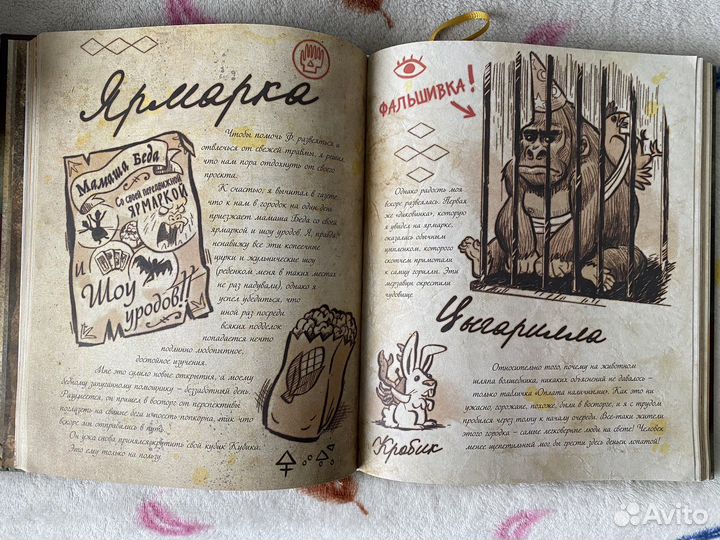 Ярмарка
Чтобы помочь Ф. развеяться и
отвлечься от свежей травмы, я решил,
что нам пора отдохнуть от своего
проекта.
К счастью, я вычитал в газете,
что к нам в городок на один день
приезжает мамаша Беда со своей
ярмаркой и шоу уродов. Я, правда,
ненавижу все эти копеечные
цирки и жульнические шоу
(ребенком меня в таких местах
не раз надували), однако я
успел убедиться, что
иной раз посреди
всяких подделок
попадается нечто
подлинно любопытное,
достойное изучения.
Мамаша Беда
Со своей передвижной
ЯРМАРКОЙ
И
Шоу
уродов!!
Мне это сулило новые открытия, а моему
бедному запуганному помощнику – беззаботный день.
Разумеется, он пришел в восторг от перспективы
поглазеть на свинью без и поесть попкорна, так что
вскоре мы отправились в путь.
Он уже снова принялся крутить свой кубик Кубика.
Это ему только на пользу.
ФАЛЬШИВКА!
Однако радость моя
вскоре развеялась. Первая
же «диковинка», которую
я увидел на ярмарке,
оказалась обычным
цыпленком, которого
скотчем примотали
к самцу гориллы. Эти
мерзавцы окрестили
чудовище
Цыгарилла
Кробик
Относительно того, почему на животном
шляпа волшебника, никаких объяснений не давалось –
только табличка «Оплата наличными». Как это ни
ужасно, горожане, похоже, были в восторге, и я с трудом
пробился через толпу к началу очереди. Все-таки жители
этого городка – самые легковерные люди на свете! Человек
менее щепетильный мог бы грести здесь деньги лопатой!
Avito